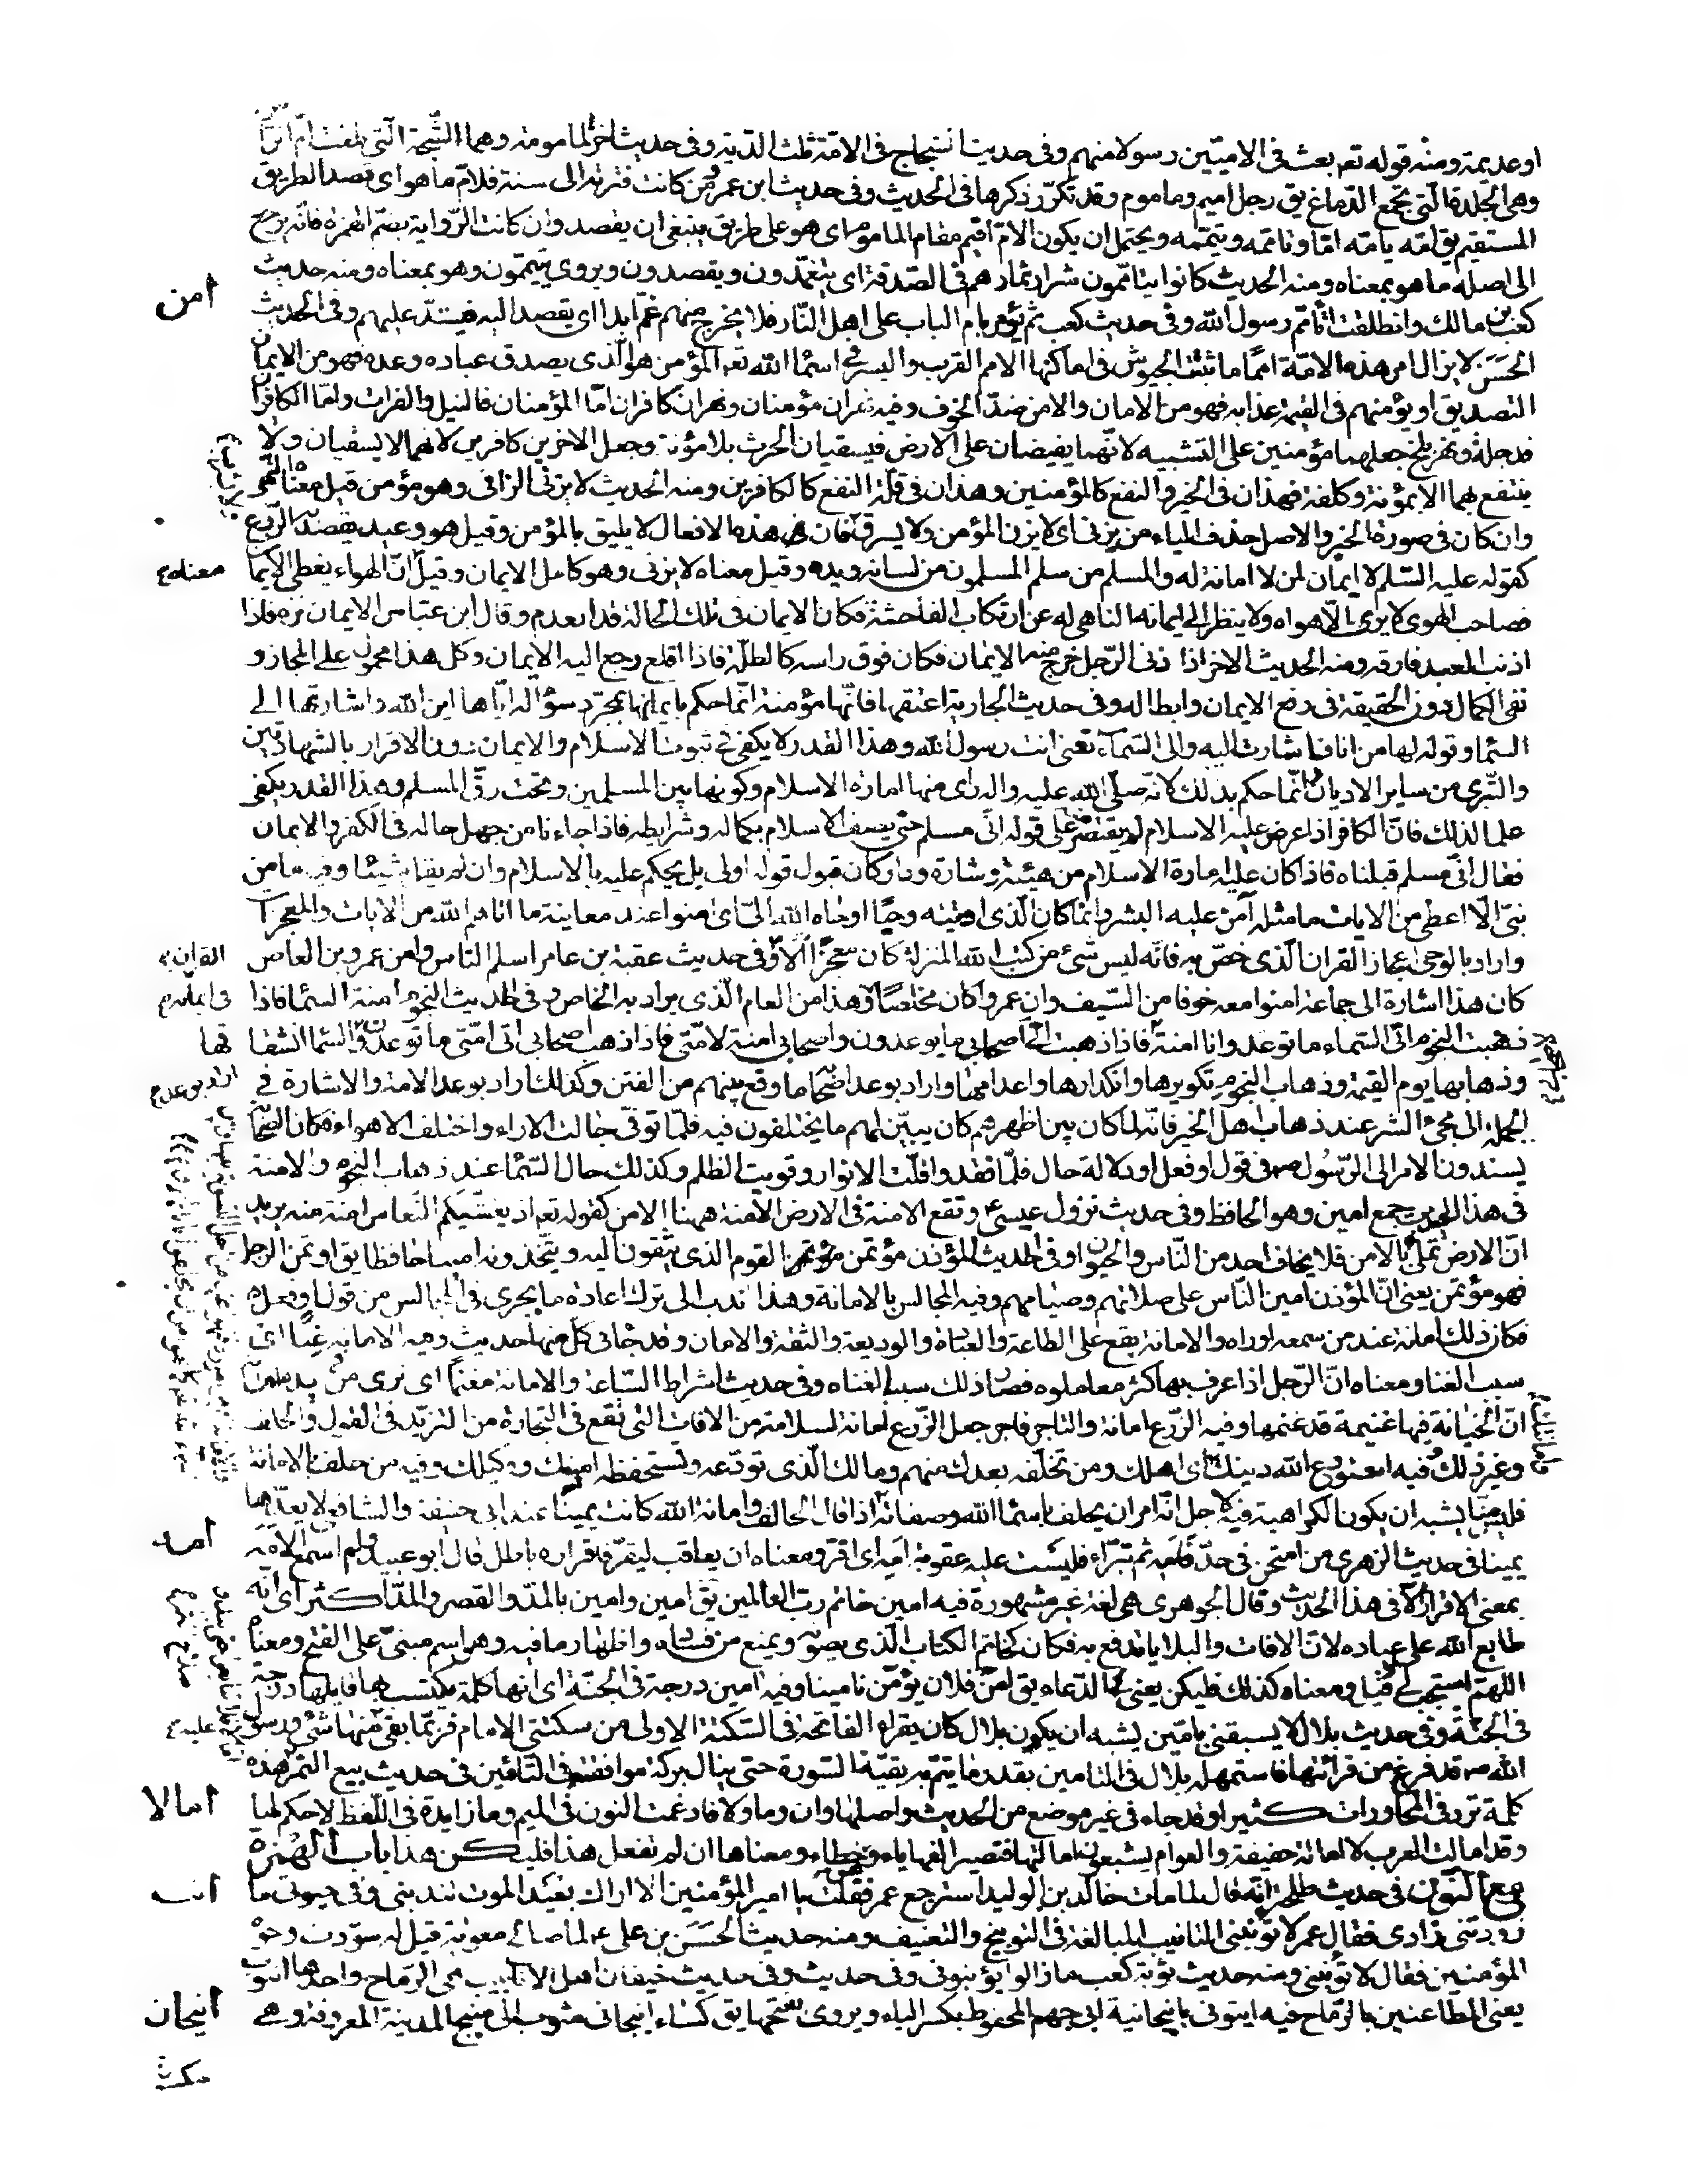 او عديمة ومنه قوله تعه بعث فى الاميّين رسولا منهم وفى حديث الشجاج فى الامّة ثلث الدّية وفى حديث اخر المامومة وهما الشّجة الّتى بلغت امّ الراس
وهى الجلدة الّتى تجمع الدّماغ يق رجل اميم وماموم وقد تكرّر ذكرها فى الحديث وفى حديث ابن عمر من كانت فترته الى سنة فلامّ ما هو اى قصد الطريق
المستقيم يق امّه يامّه امّا وتامّمه وتيمّمه ويحتمل ان يكون الامّ اقيم مقام الماموم اى هو على طريق ينبغى ان يقصد وان كانت الرّواية بضمّ الهمزة فانّه يرجع
الى اصله ما هو بمعناه ومنه الحديث كانوا يتامّمون شرار ثمارهم فى الصّدقة اى يتعمّدون ويقصدون ويروى يتيمّمون وهو بمعناه ومنه حديث
امن
كعب بن مالك وانطلقت اتامّم رسول اللّه وفى حديث كعب ثم يؤمر بام الباب على اهل النّار فلا يخرج منهم غمّ ابدا اى يقصد اليه فيسّد عليهم وفى الحديث
الحَسَن لا يزال امر هذه الامّة امَمًا ما ثبتت الجيوش فى اماكنها الامم القرب واليسر فى اسماء اللّه تعه المؤمن هو الّذى يصدق عباده وعده فهو من الايمان
التصديق او يؤمنهم فى القيمة عذابه فهو من الامان والامن ضدّ الخوف وفيه نهران مؤمنان ونهران كافران امّا المؤمنان فالنيل والفرات وامّا الكافران
فدجلة ونهر بلخ جعلهما مؤمنين على التشبيه لانّهما يفيضان على الارض فيسقيان الحرث بلا مؤنة وجعل الاخرين كافرين لانهما لا يسقيان ولا
ينتفع بهما الا بمؤنة وكلفة فهذان فى الخير والنفع كالمؤمنين وهذان فى قلّة النفع كالكافرين ومنه الحديث لا يزنى الزانى وهو مؤمن قيل معناه النّهى
وان كان فى صورة الخبر والاصل حذف الياء من يزنى اى لا يزن المؤمن ولا يسرق فان هذه الافعال لا يليق بالمؤمن وقيل هو وعيد يقصد به الرّدع
كقوله عليه السّلم لا ايمان لمن لا امانة له والمسلم من سلم المسلمون من لسانه ويده وقيل معناه لا يزنى وهو كامل الايمان وقيل انّ الهواء يغطى الايمان
معناه
فصاحب الهوى لا يرى الّا هواه ولا ينظر الى ايمانه الناهى له عن ارتكاب الفاحشة فكان الايمان فى تلك الحالة قد انعدم وقال ابن عباس الايمان نزه فاذا
اذنب العبد فارقه ومنه الحديث الاخر اذا زنى الرّجل خرج منه الايمان فكان فوق راسه كالظلّة فاذا اقلع رجع اليه الايمان وكل هذا محمول على المجاز و
نفى الكمال دون الحقيقة فى رفع الايمان وابطاله وفى حديث الجارية اعتقها فانّها مؤمنة انّما حكم بايمانها بمجرّد سؤاله ايّاها اين اللّه واشارتها الى
السّماء وقوله لها من انا فاشارت اليه والى السّماء تعنى انت رسول اللّه وهذا القدر لا يكفى فى ثبوت الاسلام والايمان دون الاقرار بالشهادتين
والتّبرى من ساير الاديان وانّما حكم بذلك لانّه صلّى اللّه عليه واله راى منها امارة الاسلام وكونها بين المسلمين وتحت رقّ المسلم وهذا القدر يكفى
علما لذلك فانّ الكافر اذا عرض عليه الاسلام لم يقتصر على قوله انّى مسلم حتى يصف الاسلام بكماله وشرايطه فاذا جاءنا من جهل حاله فى الكفر والايمان
فقال انّى مسلم قبلناه فاذا كان عليه امارة الاسلام من هيئة وشارة ودار كان قبول قوله اولى بل يحكم عليه بالاسلام وان لم يقل شيئا وفيه ما من
نبىّ الّا اعطى من الايات ما مثله آمن عليه البشر وانّما كان الّذى اوتيته وحيًا اوحاه اللّه الىّ اى امنوا عند معاينة ما اتاهم اللّه من الايات والمعجزات
واراد بالوحى اعجاز القران الّذى خصّ به فانّه ليس شئ من كتب اللّه المنزلة كان معجزًا الّا وفى حديث عقبة بن عامر اسلم الناس وامن عمرو بن العاص
القران
كان هذا اشارة الى جماعة امنوا معه خوفا من السّيف وان عمرو كان مخلصا وهذا من العام الّذى يراد به الخاص وفى الحديث النجوم امنة السّماء فاذا
فى ايمانه
ذهبت النجوم اتى السّماء ما توعد وانا امنة فاذا ذهبت اتى اصحابى ما يوعدون واصحابى امنة لامّتى فاذا ذهب اصحابى اتى امّتى ما توعد وعد السّماء انشقا
قها
وذهابها يوم القيمة وذهاب النجوم تكويرها وانكدارها واعدامها واراد بوعد اصحابه ما وقع بينهم من الفتن وكذلك اراد بوعد الامة والاشارة فى
اراد بوعد
الجملة الى مجئ الشر عند ذهاب اهل الخير فانّه لما كان بين اظهرهم كان يبيّن لهم ما يختلفون فيه فلمّا توفّى حالت الاراء واختلف الاهواء فكان الصّحابة
يسندون الامر الى الرّسول صه فى قول او فعل او دلالة حال فلمّا فقد وا قلّت الانوار وقويت الظلم وكذلك حال السّماء عند ذهاب النجوم والامنة
فى هذا الحديث جمع امين وهو الحافظ وفى حديث نزول عيسى وتقع الامنة فى الارض الامنة ههنا الامن كقوله تعه اذ يغشّيكم النّعاس امنة منه يريد
انّ الارض تملى بالامن فلا يخاف احد من النّاس والحيوان وفى الحديث المؤذن مؤتمن مؤتمن القوم الذى يثقون اليه ويتّخذونه امينا حافظا يق اوتمن الرجل
فهو مؤتمن يعنى انّ المؤذن امين النّاس على صلاتهم وصيامهم وفيه المجالس بالامانة وهذا ندب الى ترك اعادة ما يجرى فى المجالس من قول او فعل
فكان ذلك امانة عند من سمعه او راه والامانة يقع على الطاعة والعبادة والوديعة والثقة والامان وقد جاء فى كلّ منها حديث وفيه الامانة غِنًا اى
سبب الغنا ومعناه انّ الرّجل اذا عرف بها كثر معاملوه فصار ذلك سببا لغناه وفى حديث اشراط السّاعة والامانة مغنمًا اى يرى من يده امانة
انّ الخيانة فيها غنيمة قد غنمها وفيه الزّرع امانة والتاجر فاجر جعل الزّرع امانة لسلامته من الافات التى تقع فى التّجارة من التزيّد فى القول والحلف
وغير ذلك وفيه استودع اللّه دينك وامانتك اى اهلك ومن تخلّفه بعدك منهم ومالك الّذى تودّعه وتستحفظه امينك ووكيلك وفيه من حلف بالامانة
فليس منّا يشبه ان يكون الكراهية فيه لاجل انّه امر ان يحلف باسماء اللّه وصفاته اذا قال الحالف وامانة اللّه كانت يمينا عند ابى حنيفة والشافعى لا يعدّها
امه
يمينا فى حديث الزهرى من امتحن فى حدّ فَاَمِهَ ثم تبرّاء فليست عليه عقوبة اَمِهَ اى اقرّ ومعناه ان يعاقب ليقرّ فاقراره باطل قال ابو عبيد ولم اسمع الامه
بمعنى الاقرار الّا فى هذا الحديث وقال الجوهرى هى لغة غير مشهورة فيه امين خاتم ربّ العالمين يق امين وامين بالمدّ والقصر والمدّ اكثر اى انّه
طابع اللّه على عباده لانّ الافات والبلايا تدفع به فكان كخاتم الكتاب الّذى يصونه ويمنع من فساده واظهار ما فيه وهو اسم مبنىّ على الفتح ومعناه
اللهمّ استجب لى وقيل ومعناه كذلك فليكن يعنى الدّعاء يق امّن فلان يؤمّن تامينا وفيه امين درجة فى الجنّة اى انها كلمة يكتسب بها قايلها درجة
فى الجنّة وفى حديث بلال لا يسبقنى بامّين يشبه ان يكون بلال كان يقراء الفاتحة فى السّكتة الاولى من سكتتى الامام فربّما يبقى منها شئ ورسول
عليه
اللّه صه قد فرغ من قرائتها فاستمهله بلال فى التامين بقدر ما يتمّ به بقيّة السّورة حتى ينال بركة موافقته فى التّامين فى حديث بيع التمر هذه
امالا
كلمة ترد فى المحاورات كثيرا وقد جاء فى غير موضع من الحديث واصلها وان وما ولا فادغمت النون فى الميم وما زايدة فى اللّفظ لا حكم لها
وقد امالت العرب لا امالة خفيفة والعوام يشبعون امالتها فتصير الفها ياء وهو خطاء ومعناها ان لم تفعل هذا فليكن هذا باب الهمزة
مع النون فى حديث طلحة انّه قال لما مات خالد بن الوليد استرجع عمر فقلت يا امير المؤمنين الا اراك بعيد الموت تندبنى وفى حيوتى ما
انب
زودتنى زادى فقال عمر لا تؤنبنى التانيب المبالغة فى التوبيخ والتعنيف ومنه حديث الحَسَن بن على عه لما صالح معوية قيل له سوّدت وجوه
المؤمنين فقال لا تؤنبنى ومنه حديث توبة كعب ما زالوا يؤنبونى وفى حديث خيفان اهل الانابيب هى الرّماح واحدها انبوب
يعنى المطاعنين بالرّماح فيه ايتونى بانبجانية ابى جهم المحفوظ بكسر الباء ويروى بفتحها يق كساء انبجانى منسوب الى منبج المدينة المعروفة وهى
انبجان